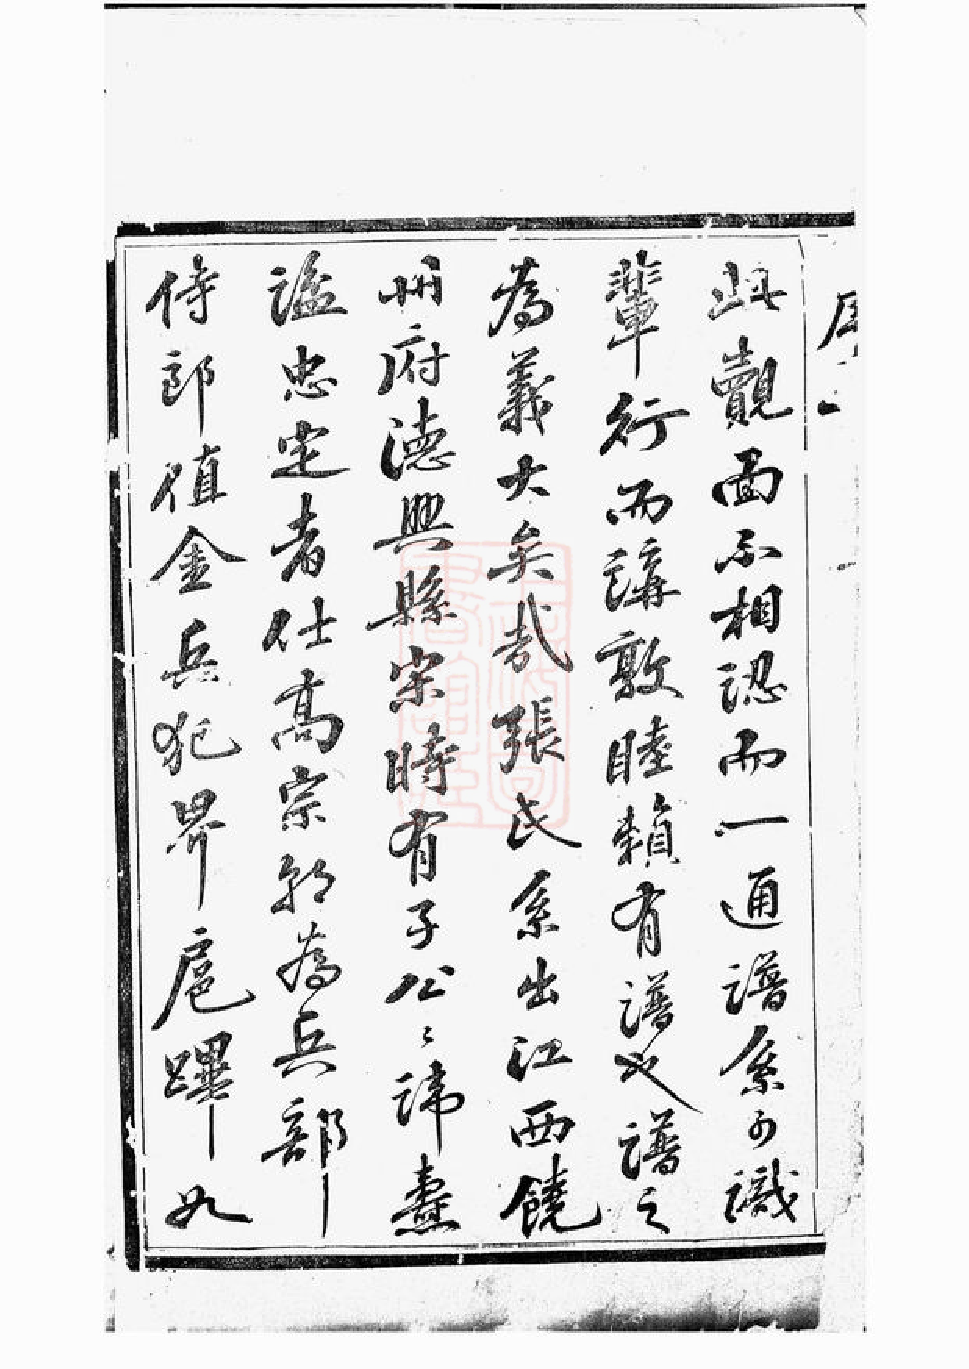 此覿面不相認而一通譜系可識
輩行而講敦睦賴有譜也譜之
為義大矣哉張氏系出江西饒
州府德興縣宋時有子公〻諱燾
謚忠定者仕高宗朝為兵部
侍郎值金兵犯界扈蹕九